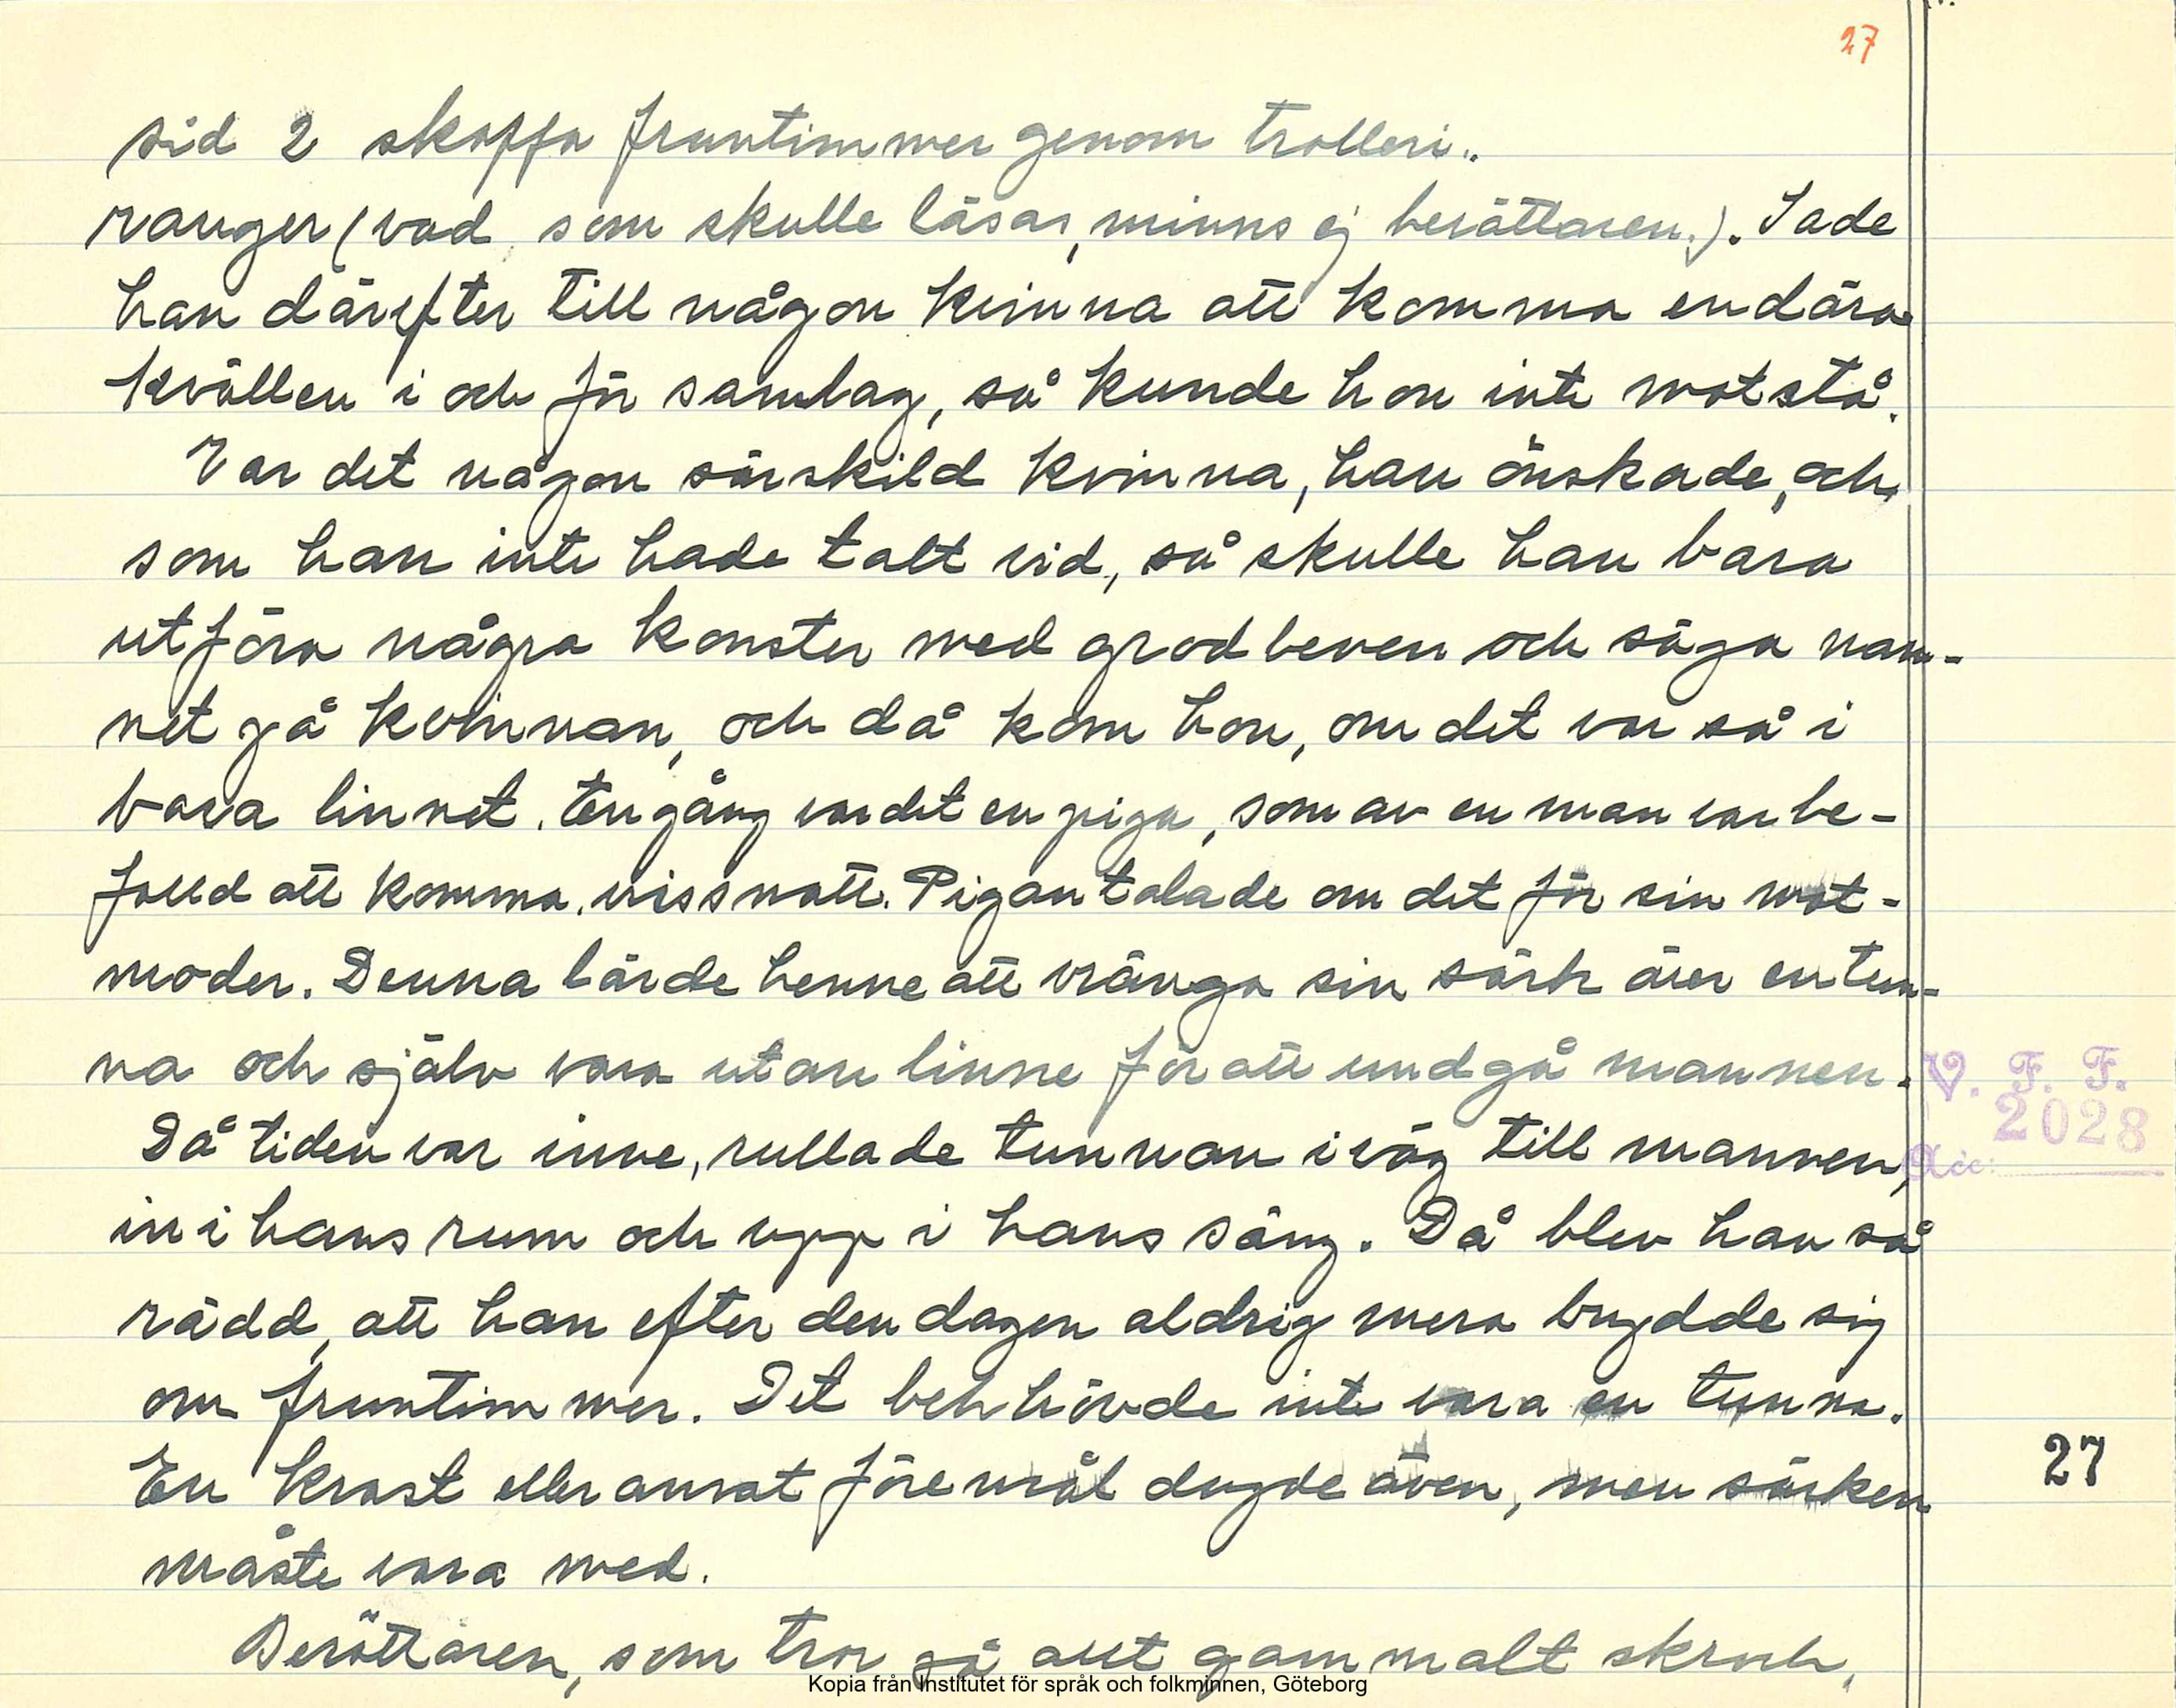 27
sid 2 skaffa fruntimmer genom trolleri.
ranger (vad som skulle läsas, minns ej berättaren.). Sade
han därefter till någon kvinna att komma endära
kvällen i och för samlag, så kunde hon inte motstå.
Var det någon särskild kvinna, han önskade, och
som han inte hade talt vid, så skulle han bara
utföra några konster med grodbenen och säga nam-
net på kvinnan, och då kom hon, om det var så i
bara linnet. En gång var det en piga, som av en man var be-
falld att komma viss natt. Pigan talade om det för sin mat-
moder. Denna lärde henne att vränga sin särk över en tun-
na och själv vara utan linne för att undgå mannen.
Då tiden var inne, rullade tunnan iväg till mannen,
in i hans rum och upp i hans säng. Då blev han så
rädd, att han efter den dagen aldrig mera brydde sig
om fruntimmer. Det behhövde inte vara en tunna.
En kvast eller annat föremål dugde även, men särken
måste vara med.
Berättaren, som tror på allt gammalt skrock,
V. F. F.
2028
Acc:
27
Kopia från Institutet för språk och folkminnen, Göteborg